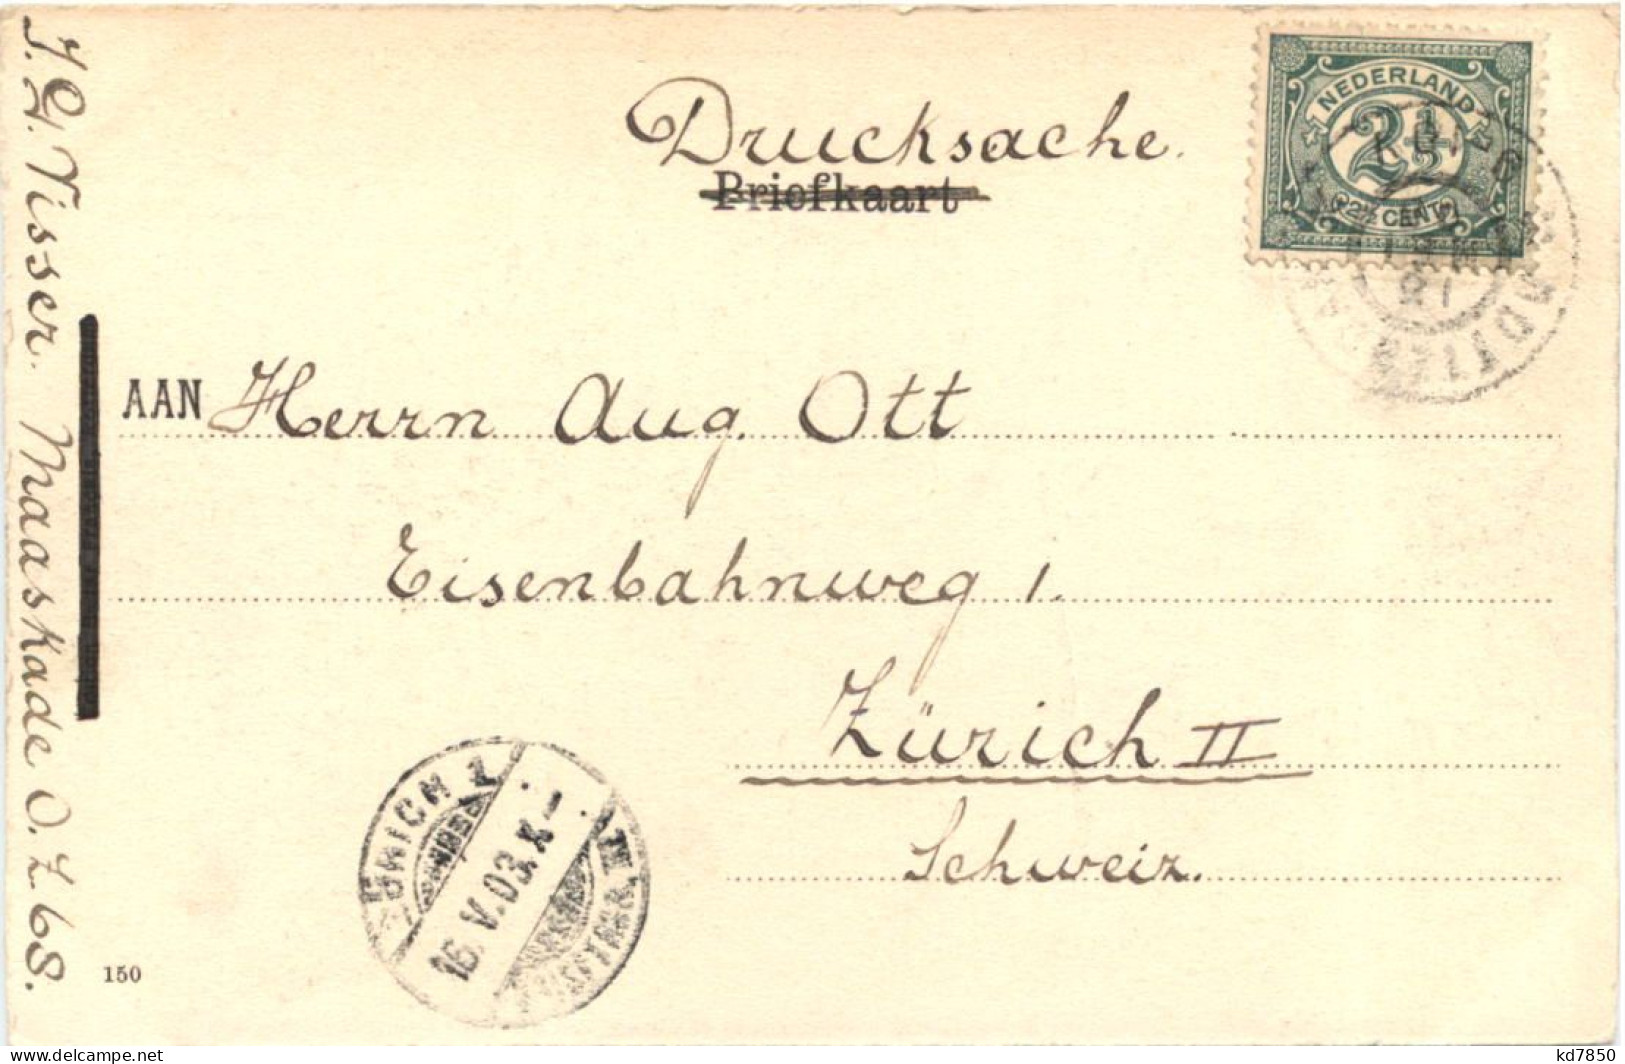 Drucksache.
Briefkaart
NEDERLAND
2½
2½ CENT
AAN Herrn Aug. Ott
Eisenbahnweg 1.
Zürich II
Schweiz.
Visser. Maaskade O.Z. 68.
ZÜRICH 1
16.V.03.X-
150
www.delcampe.net
kd7850